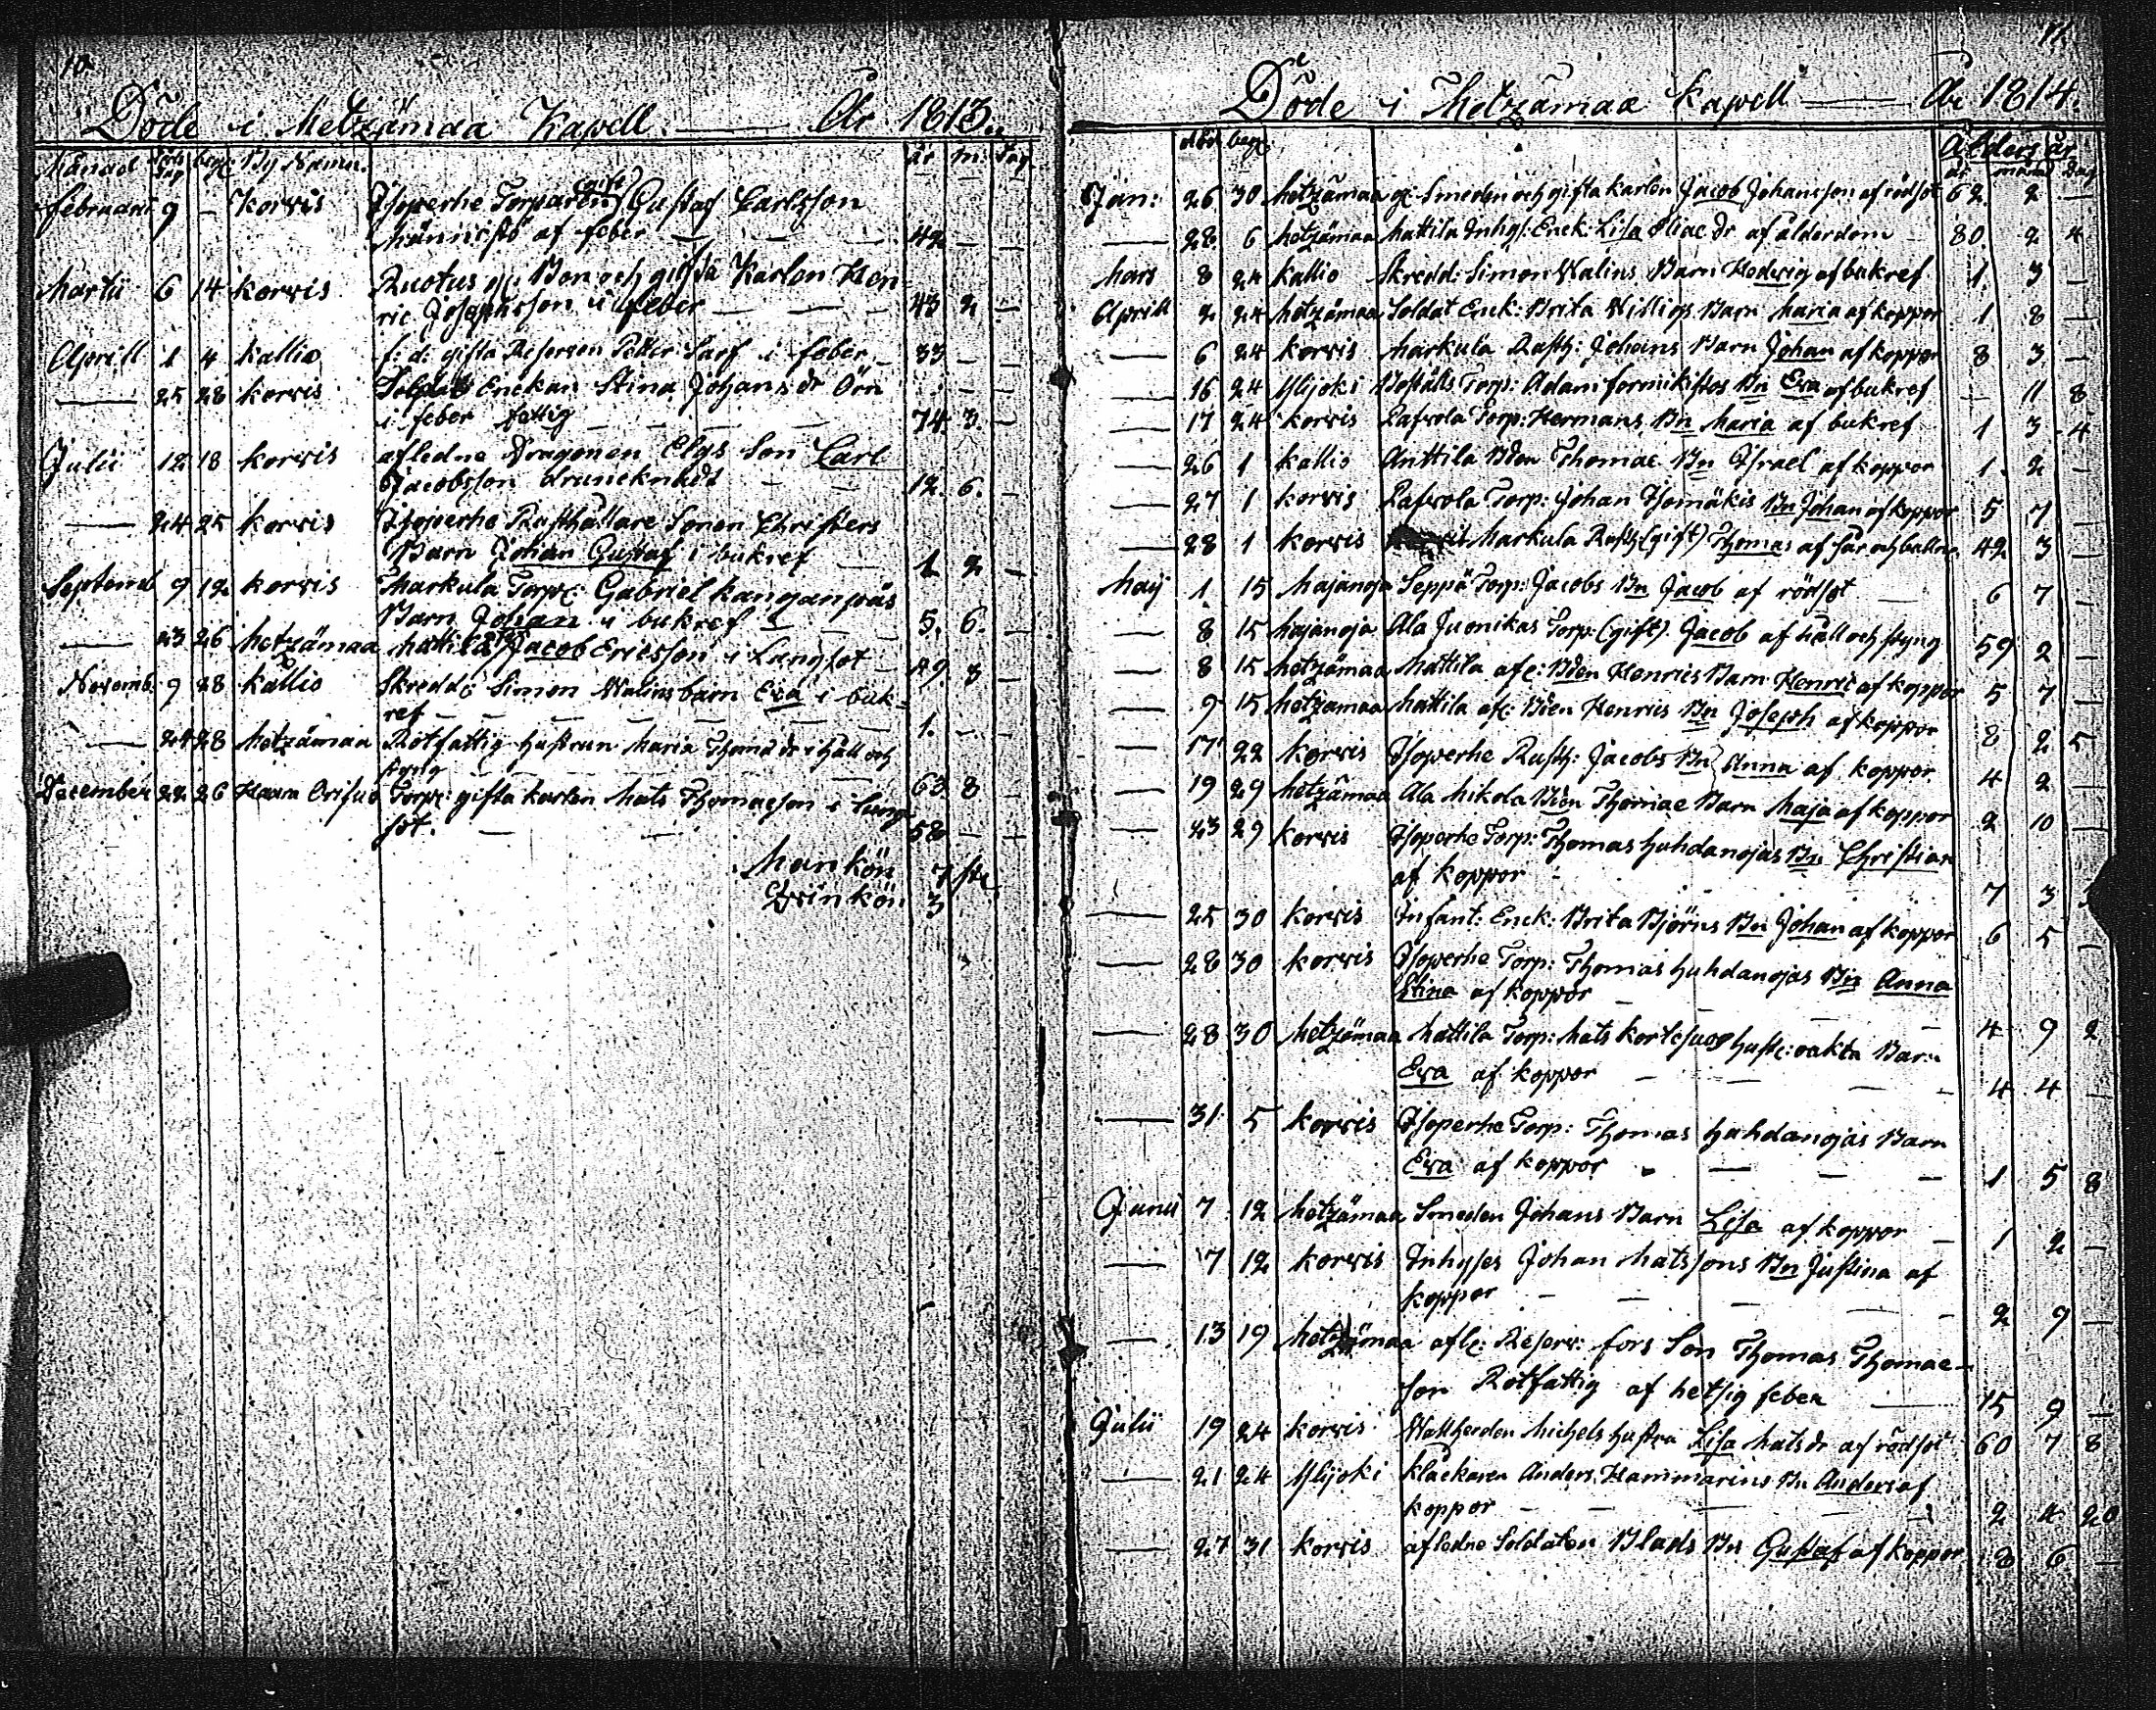 10.
Döde i Metzämaa Kapell. År 1813.
Månad döds dag begr By Namn. år m: dag
Februarii 9 – Korvis Isoperhe Torparen (gift) Gustaf Carlsson
Männistö af feber 42 – –
Martii 6 14 korvis Ruotus Bon och gifta Karlen Hen-
ric Josephsson i feber 43 2 –
Aprill 1 4 kallio f: d: gifta Reserven Petter Sarf i feber 33 – –
25 28 korvis Soldats Enckan Stina Johans dr Örn
i feber fattig 74. 3. –
Julii 12 18 korvis afledne Dragonen Elgs Son Carl
Jacobsson drunknadt 12. 6. –
24 25 korvis Isoperhe Rusthållare Sonen Christers
Barn Johan Gustaf i bukref 1 2 –
Septemb 9 12 korvis Markula Torp: Gabriel kanganpäs
Barn Johan i bukref 5. 6. –
23 26 metzämaa mattila Jacob Ericsson i Lungsot 49. 3 –
Novemb. 9 28 kallio Skredd: Simon Walins barn Eva i buk-
ref 1. – –
24 28 metzämaa Rotfattig hustrun Maria Thomæ dr i håll och
styng 63. 8 –
December 22 26 Torp: gifta karlen Mats Thomasson i lung
sot. 58 – –
Mankön 7 st
Qvinkön 3
11.
Döde i Metzämaa Kapell År 1814.
död begr Ålders år
år månad Dag
Jan: 26 30 metzämaa Smeden och gifta karlen Jacob Johansson af rödsot 62 2 –
28 6 metzämaa mattila Inhys: Enck: Lisa Eliae dr af ålderdom 80 2 4
Mars 8 24 kallio Skredd: Simon Walins Barn Hedvig af bukref 1. 3 –
Aprill 2 24 metzämaa Soldat Enck: Brita Willigs Barn Maria af koppor 1 8 –
6 24 korvis Markula Rusth: Johans Barn Johan af koppor 8 3 –
16 24 Ylijoki Boställs Torp: Adam formikistos Bn Eva af bukref – 11 8
17 24 korvis Rafvola Torp: Hermans Bn Maria af bukref 1 3 4
26 1 kallio Anttila Bden Thomae Bn Israel af koppor 1 2 –
27 1 korvis Rafvola Torp: Johan Isomäkis Bn Johan af koppor 5 7 –
28 1 korvis Markula Rusth (gift) Thomas af sår och bölder 42 3 –
Maij 1 15 Majanoja Seppä Torp: Jacobs Bn Jacob af rödsot 6 7 –
8 15 majanoja Ala Juonikas Torp: (gift) Jacob af håll och styng 59 2 –
8 15 metzämaa mattila afl: Bden Henrics Barn Henric af koppor 5 7 –
9 15 metzämaa mattila afl: Bden Henrics Bn Joseph af koppor 8 2 5
17 22 korvis Isoperhe Rusth: Jacobs Bn Anna af koppor 4 2 –
19 29 metzämaa Ala mikola Bden Thomae Barn Maja af koppor 2 10 –
23 29 korvis Isoperhe Torp: Thomas huhdanojas Bn Christian
af koppor 7 3
25 30 korvis Infant: Enck: Brita Björns Bn Johan af koppor 6 5 –
28 30 korvis Isoperhe Torp: Thomas huhdanojas Bn Anna
Stina af koppor 4 9 2
28 30 metzämaa mattila Torp: Mats kortesuos hustr: oäkta Barn
Eva af koppor 4 4 –
31 5 korvis Isoperhe Torp: Thomas huhdanojas Barn
Eva af koppor 1 5 8
Junii 7 12 metzämaa Smeden Johans Barn Lisa af koppor 1 2 –
7 12 korvis Inhyses Johan Matssons Bn Justina af
koppor 2 9 –
13 19 metzämaa afl: Reserv: fors Son Thomas Thomae-
son Rotfattig af hetsig feber 15 9 –
Julii 19 24 korvis Wallherden Michels hustru Lisa Mats dr af rödsot 60 7 8
21 24 Ylijoki klåckaren Anders Hammarins Bn Anders af
koppor 2 4 20
27 31 korvis afledne Soldaten Blads Bn Gustaf af koppor 8 6 –